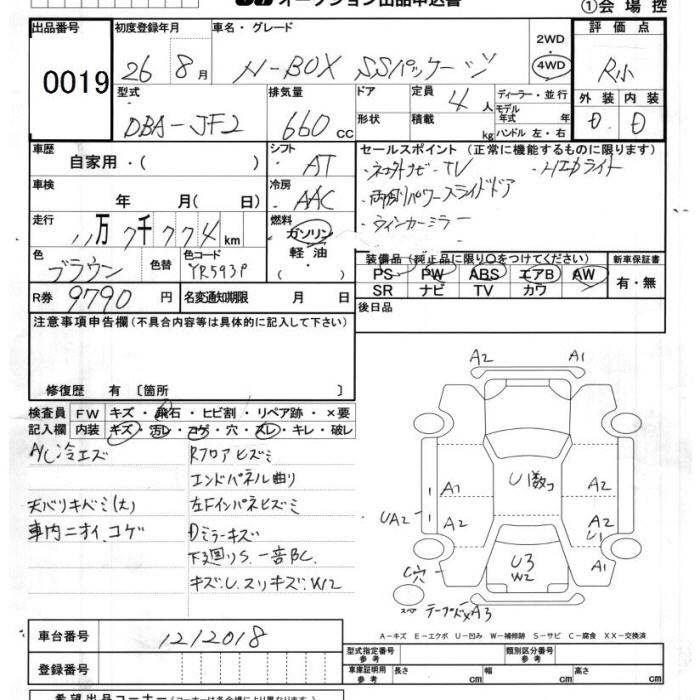 オークション出品申込書
①会場控
出品番号 初度登録年月 車名・グレード 評価点
0019 26 8月 N-BOX SSパッケージ 2WD 4WD R小
型式 排気量 ドア 定員 4人 ディーラー・並行 外装 内装
DBA-JF2 660cc 形状 積載 kg モデル年式 年 ハンドル 左・右 D D
車歴 自家用・( ) シフト AT セールスポイント(正常に機能するものに限ります)
ナビ・TV
車検 年 月( 日) 冷房 AAC 両側パワースライドドア
走行 11万7千774km 燃料 ガソリン 軽油 ・( ) ウィンカーミラー
色 ブラウン 色替 色コード YR593P 装備品(純正品に限り○をつけてください) 新車保証書
PS PW ABS エアB AW 有・無
SR ナビ TV カワ
R券 9790円 名変通知期限 月 日 後日品
注意事項申告欄(不具合内容等は具体的に記入して下さい)
修復歴 有 〔箇所 〕
検査員記入欄 FW キズ・飛石・ヒビ割・リペア跡・×要
内装 キズ・汚レ・コゲ・穴・スレ・キレ・破レ
A/C冷エズ Rフロアヒズミ
エンドパネル曲り
天バリキバミ(大) 左Fインパネヒズミ
車内ニオイ、コゲ Dミラーキズ
下廻りS、一部C
キズ、U、スリキズ、W2
A2 A1
U1数コ
A1 A2
UA2 A2 A2
U1
A1
U3
W2
C穴
スペア A3
A-キズ E-エクボ U-凹み W-補修跡 S-サビ C-腐食 XX-交換済
車台番号 1212018
型式指定番号 参考 類別区分番号 参考
登録番号 車庫証明用 参考 長さ cm 幅 cm 高さ cm
希望出品コーナー(コーナーは各会場により異なります)